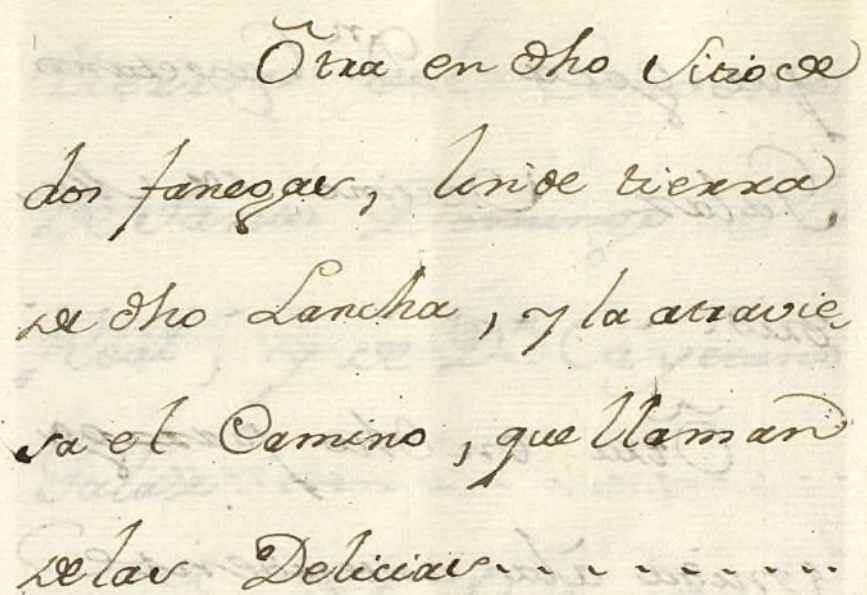 Otra en dho Sitio de
dos fanegas, linde tierra
de dho Lancha, y la atravie-
sa el Camino, que llaman
de las Delicias..........